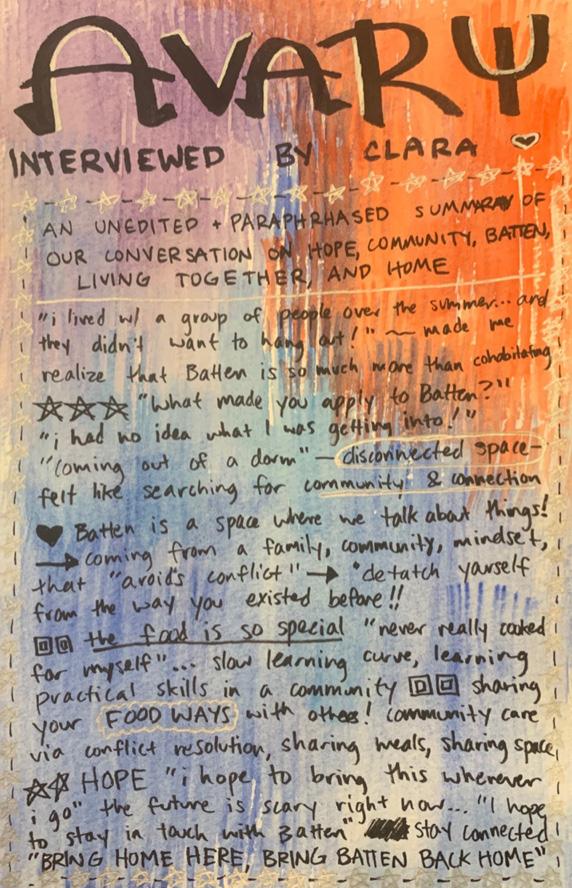 AVARY
INTERVIEWED BY CLARA
AN UNEDITED + PARAPHRHASED SUMMARY OF
OUR CONVERSATION ON HOPE, COMMUNITY, BATTEN,
LIVING TOGETHER, AND HOME
"i lived w/ a group of people over the summer... and
they didn't want to hang out!" ~ made me
realize that Batten is so much more than cohabitating
"What made you apply to Batten?"
"i had no idea what I was getting into!"
"coming out of a dorm" - disconnected space -
felt like searching for community & connection
Batten is a space where we talk about things!
→ coming from a family, community, mindset,
that "avoids conflict" → "detatch yourself
from the way you existed before!!
the food is so special "never really cooked
for myself"... slow learning curve, learning
practical skills in a community sharing
your FOOD WAYS with others! community care
via conflict resolution, sharing meals, sharing space,
HOPE "i hope to bring this wherever
i go" the future is scary right now... "I hope
to stay in touch with Batten" stay connected
"BRING HOME HERE, BRING BATTEN BACK HOME"